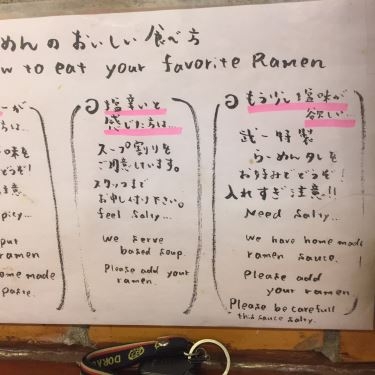 めんのおいしい食べ方
w to eat your favorite Ramen
ーが
は…
味を
どうぞ!
注意
picy...
put
ramen
home made
paste.
塩辛いと
感じた方は…
スープ割りを
ご用意しています。
スタッフまで
お申し付け下さい。
feel salty...
we serve
based soup.
Please add your
ramen.
もう少し塩味が
欲しい…
武一特製
らーめんタレを
お好みでどうぞ!
入れすぎ注意!!
Need salty...
we have home made
ramen sauce.
Please add
your ramen
Please be carefull
this sauce salty.
DORA